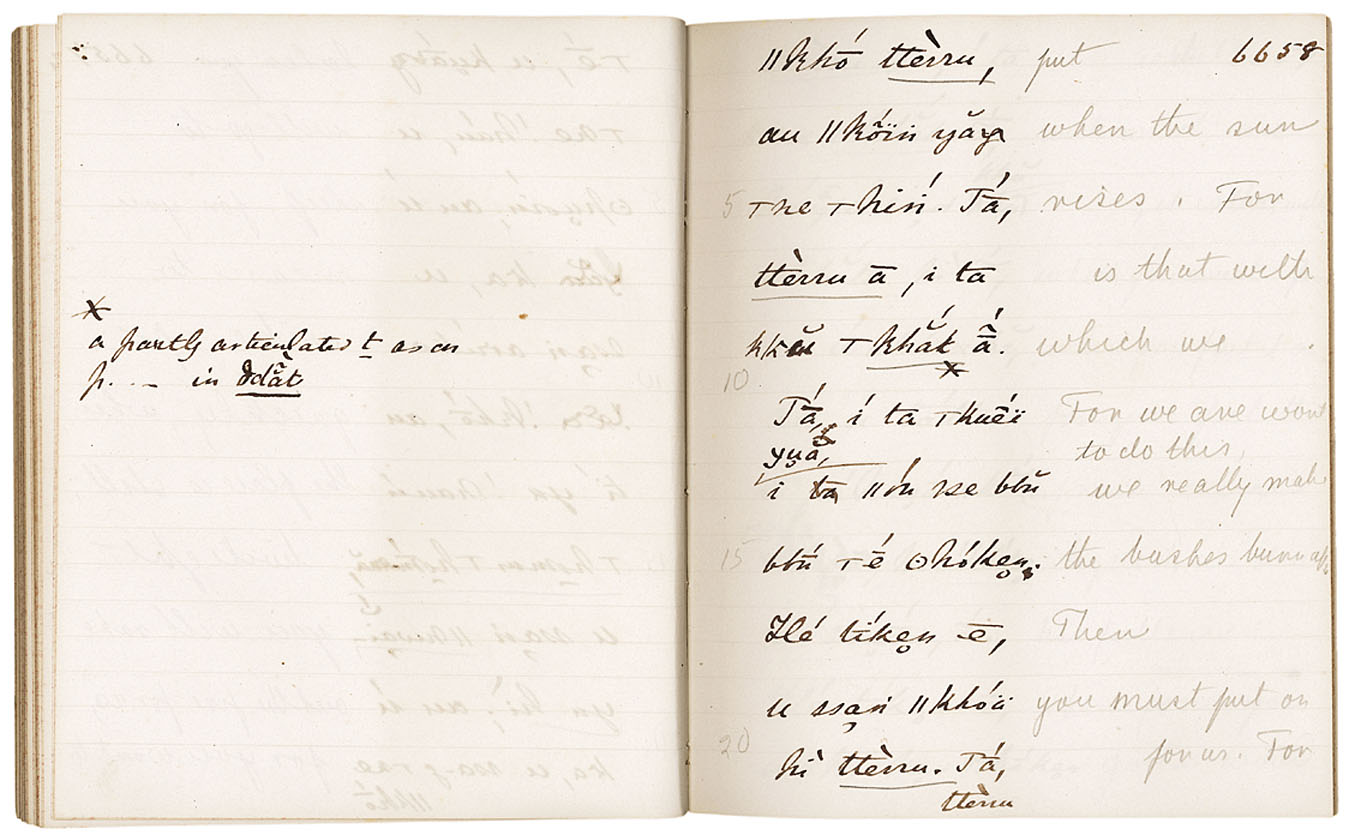 a partly articulated t as an
p. -- in ddăt
6658
ǁkhó ttèrru, put
au ǁkõïn yăŋ when the sun
5 ꞇne ꞇhiń. Tá, rises. For
ttèrru ā, i ta is that with
ꞇkhăk ā́. which we
10
Tá, í ta ꞇkuéï For we are wont
to do this,
i ta ǁń ꞇse we really make
15 ꞇé ʘhóken. the bushes burn
Hé tíken ē, Then
u ssạn ǁkhóä you must put on
20 hì ttèrru. Tá, for us. For
ttèrru